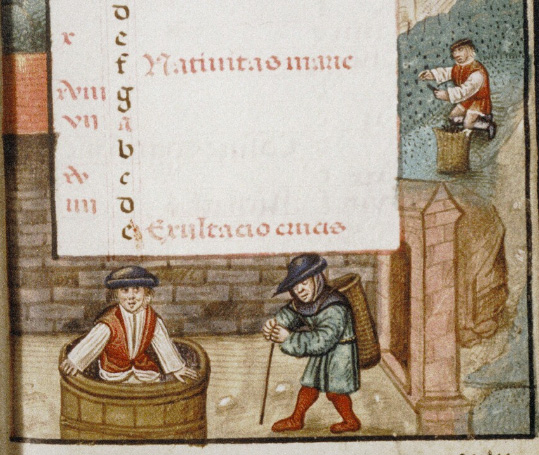 d
x e
f Natiuitas marie
xviii g
vii a
b
xv c
iiii d
e Exultacio crucis